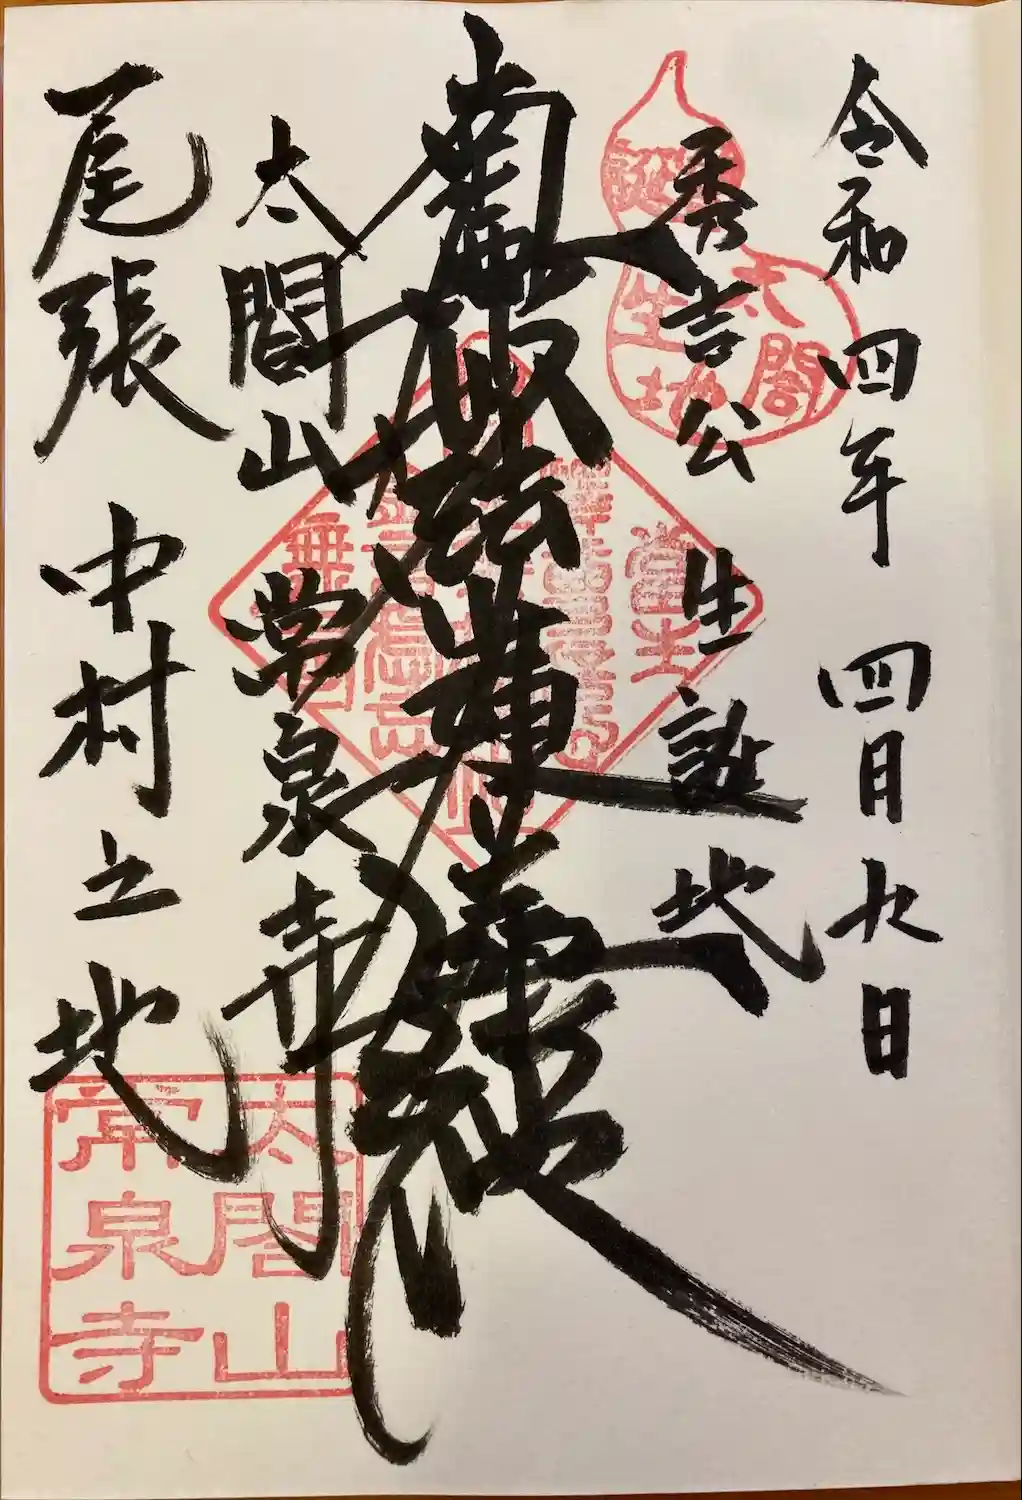 令和四年 四月九日
秀吉公 生誕地
南無妙法蓮華経
太閤山 常泉寺
尾張 中村之地
誕生地
太閤
太閤山
常泉寺